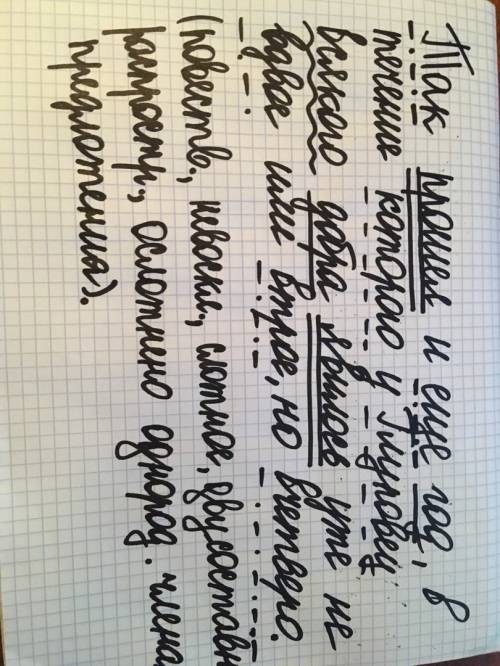 Так прошел и еще год, в
течение которого у Глуповц
всякого добра явилось уже не
вдвое или втрое, но вчетверо.
(повеств., невоскл., сложное, двусоставн
распростр., осложнено однород. члена
предложения).